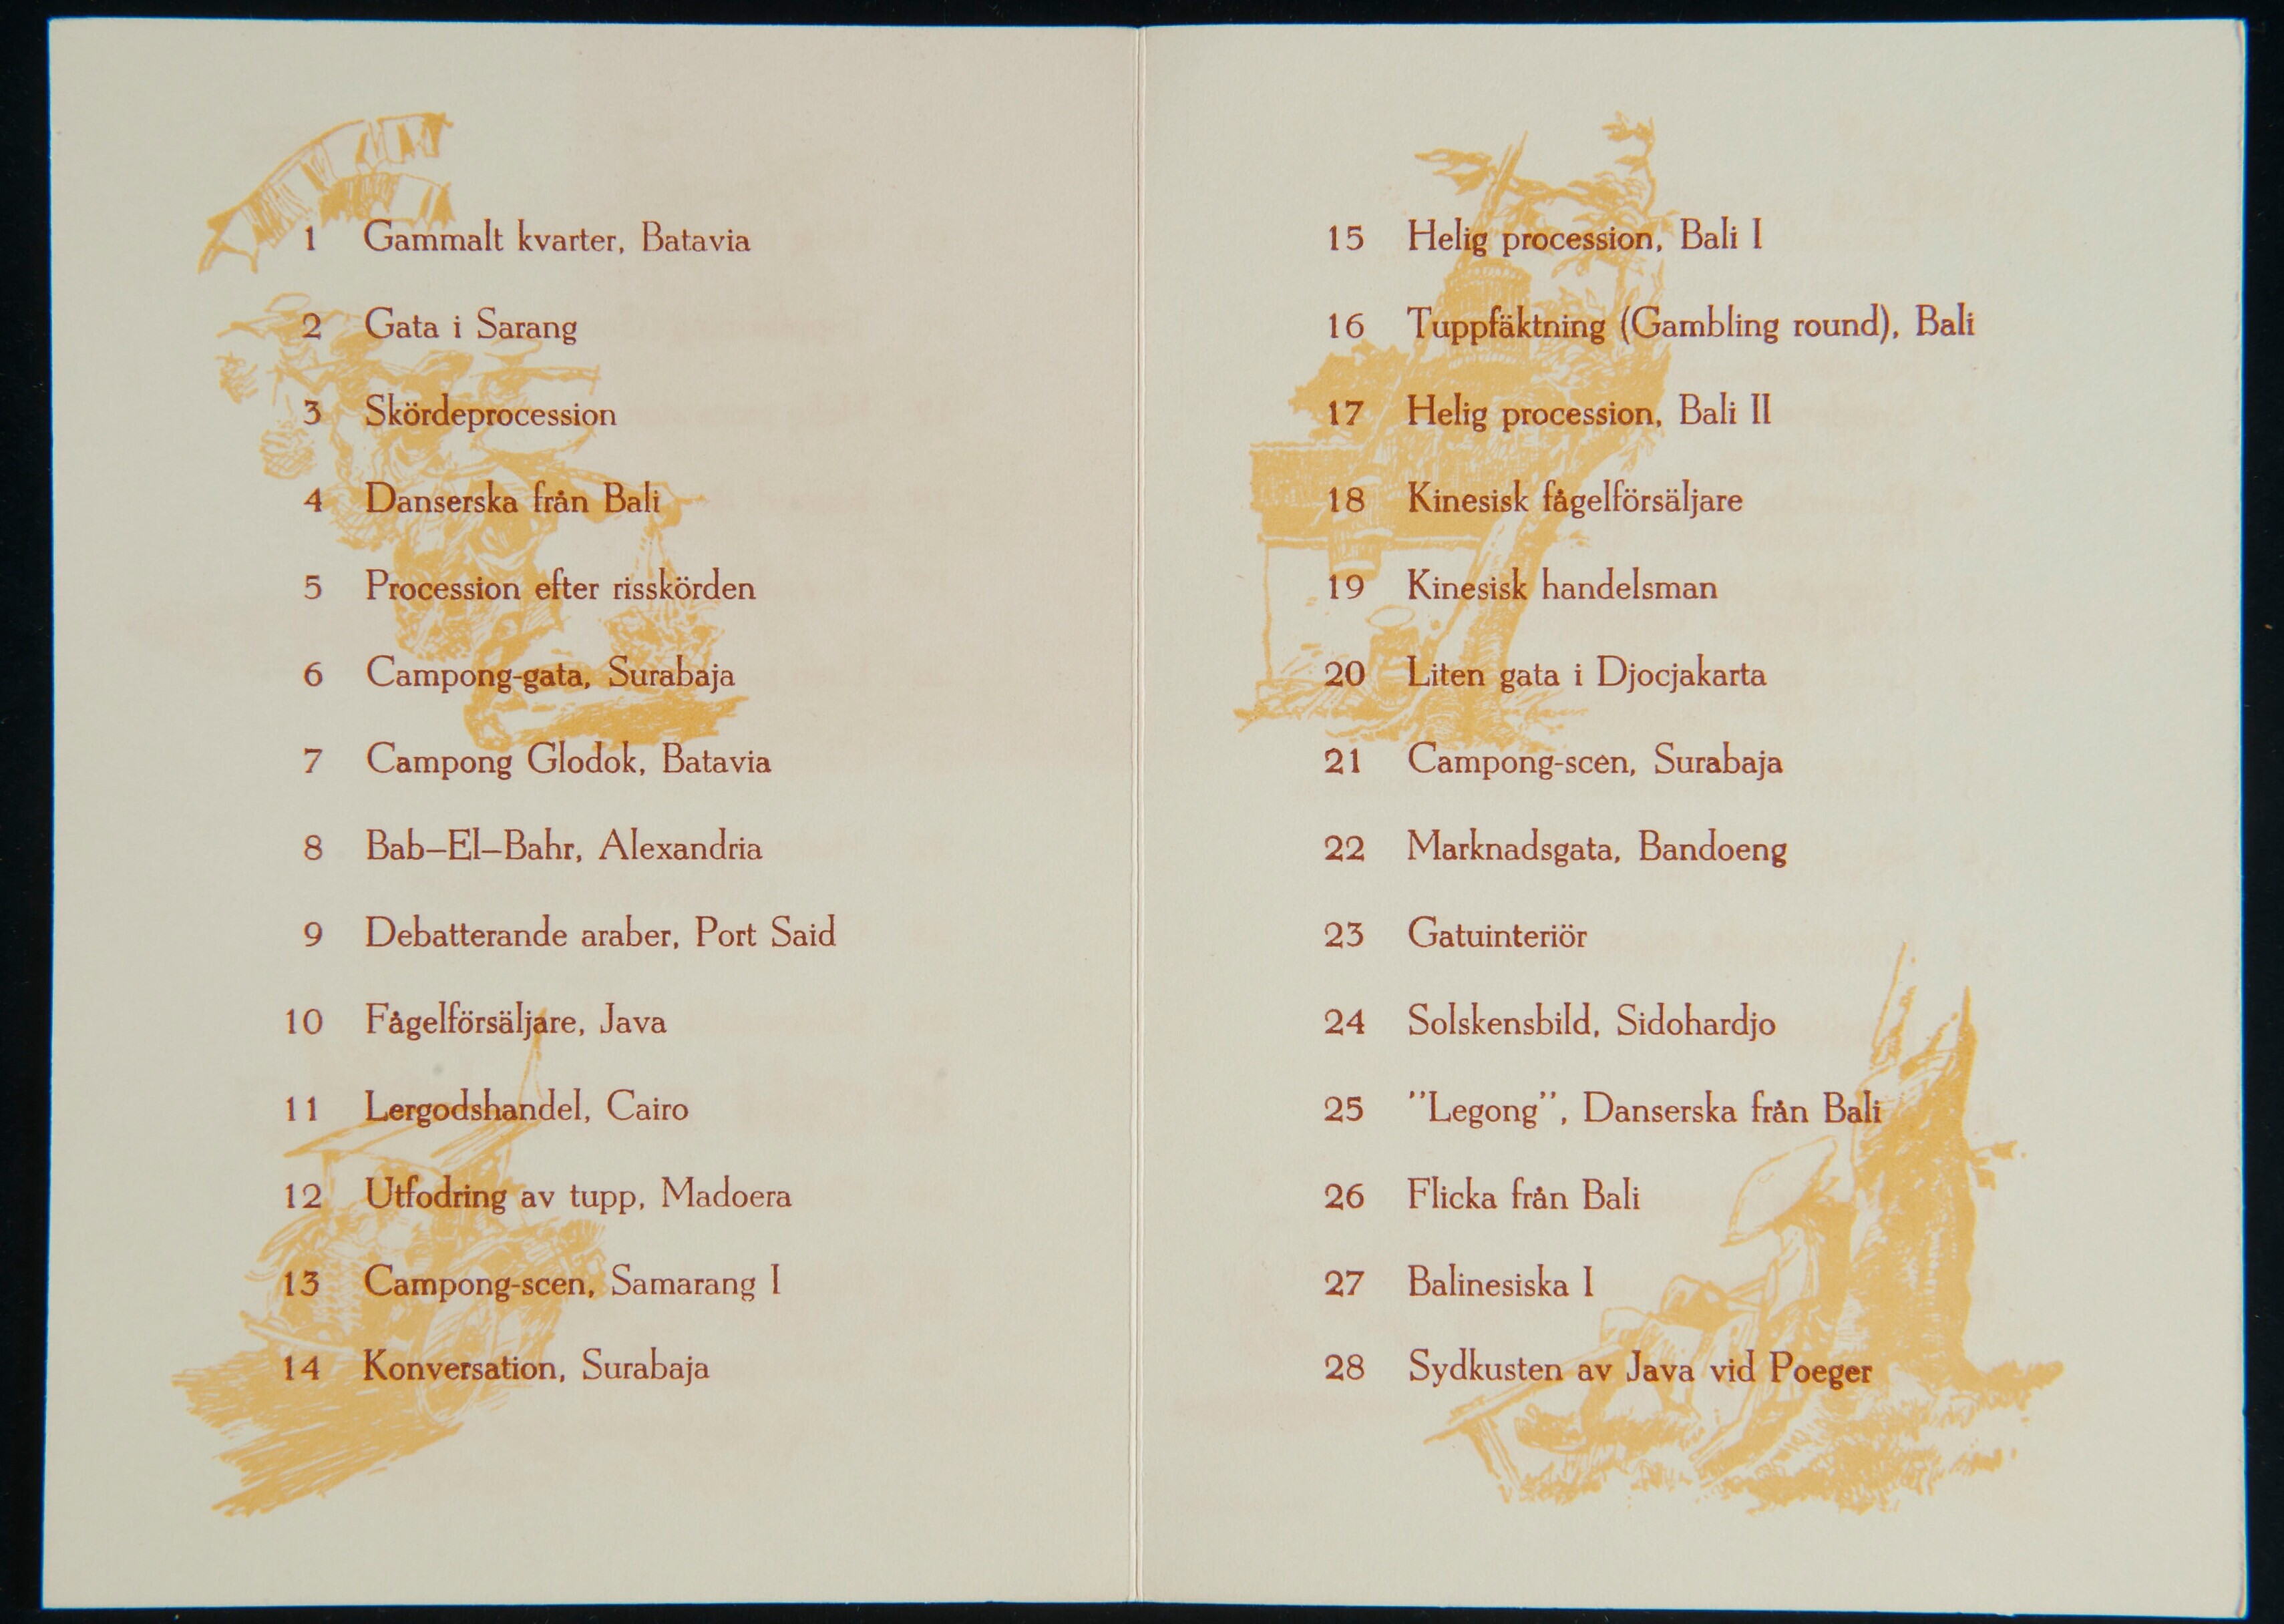 1 Gammalt kvarter, Batavia
2 Gata i Sarang
3 Skördeprocession
4 Danserska från Bali
5 Procession efter risskörden
6 Campong-gata, Surabaja
7 Campong Glodok, Batavia
8 Bab–El–Bahr, Alexandria
9 Debatterande araber, Port Said
10 Fågelförsäljare, Java
11 Lergodshandel, Cairo
12 Utfodring av tupp, Madoera
13 Campong-scen, Samarang I
14 Konversation, Surabaja
15 Helig procession, Bali I
16 Tuppfäktning (Gambling round), Bali
17 Helig procession, Bali II
18 Kinesisk fågelförsäljare
19 Kinesisk handelsman
20 Liten gata i Djocjakarta
21 Campong-scen, Surabaja
22 Marknadsgata, Bandoeng
23 Gatuinteriör
24 Solskensbild, Sidohardjo
25 "Legong", Danserska från Bali
26 Flicka från Bali
27 Balinesiska I
28 Sydkusten av Java vid Poeger